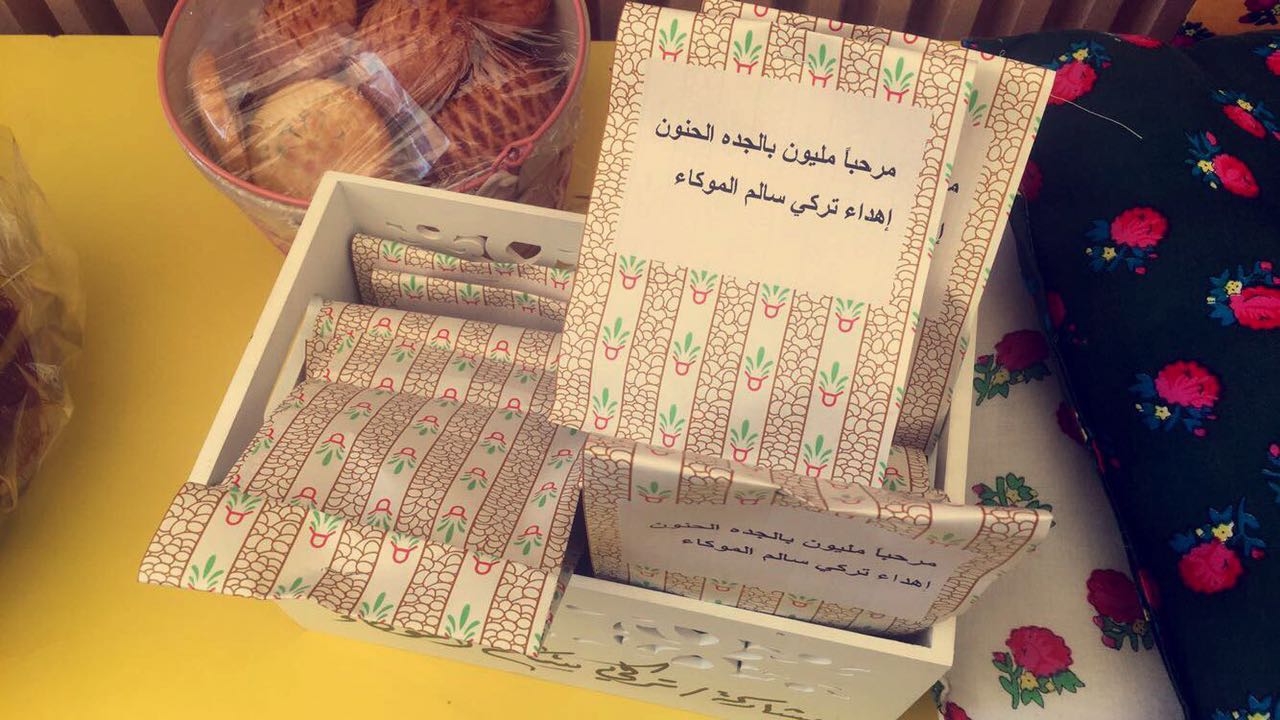 مرحباً مليون بالجده الحنون
إهداء تركي سالم الموكاء
مرحباً مليون بالجده الحنون
إهداء تركي سالم الموكاء
مشاركة / تركي